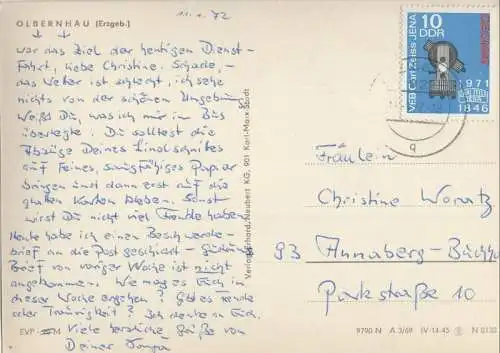 11.1.72
OLBERNHAU (Erzgeb.)
war das Ziel der heutigen Dienst-
fahrt, liebe Christine. Schade,-
das Wetter ist schlecht, ich sehe
nichts von der schönen Umgebung
Weißt Du, was ich mir im Bus
überlegte. Du solltest die
Abzüge Deines Linolschnittes
auf feines, saugfähiges Papier
bringen und dann erst auf die
glatten Karten kleben. Sonst
wirst Du nicht viel Freude haben.
Heute habe ich einen Beschwerde-
brief an die Post geschickt -
Brief von voriger Woche ist nicht
angekommen. Wie mag es Euch in
dieser Woche ergehen? Gibt es Freude
oder Traurigkeit? Ich denke an Euch.
Viele herzliche Grüße von
Deiner
EVP M
Verlag Erhard Neubert KG, 901 Karl-Marx-Stadt
10
DDR
VEB Carl Zeiss JENA
1971
1846
Fräulein
Christine
93 Annaberg-Buchh
Parkstraße 10
9790 N A 3/69 IV-14-45 N 0132